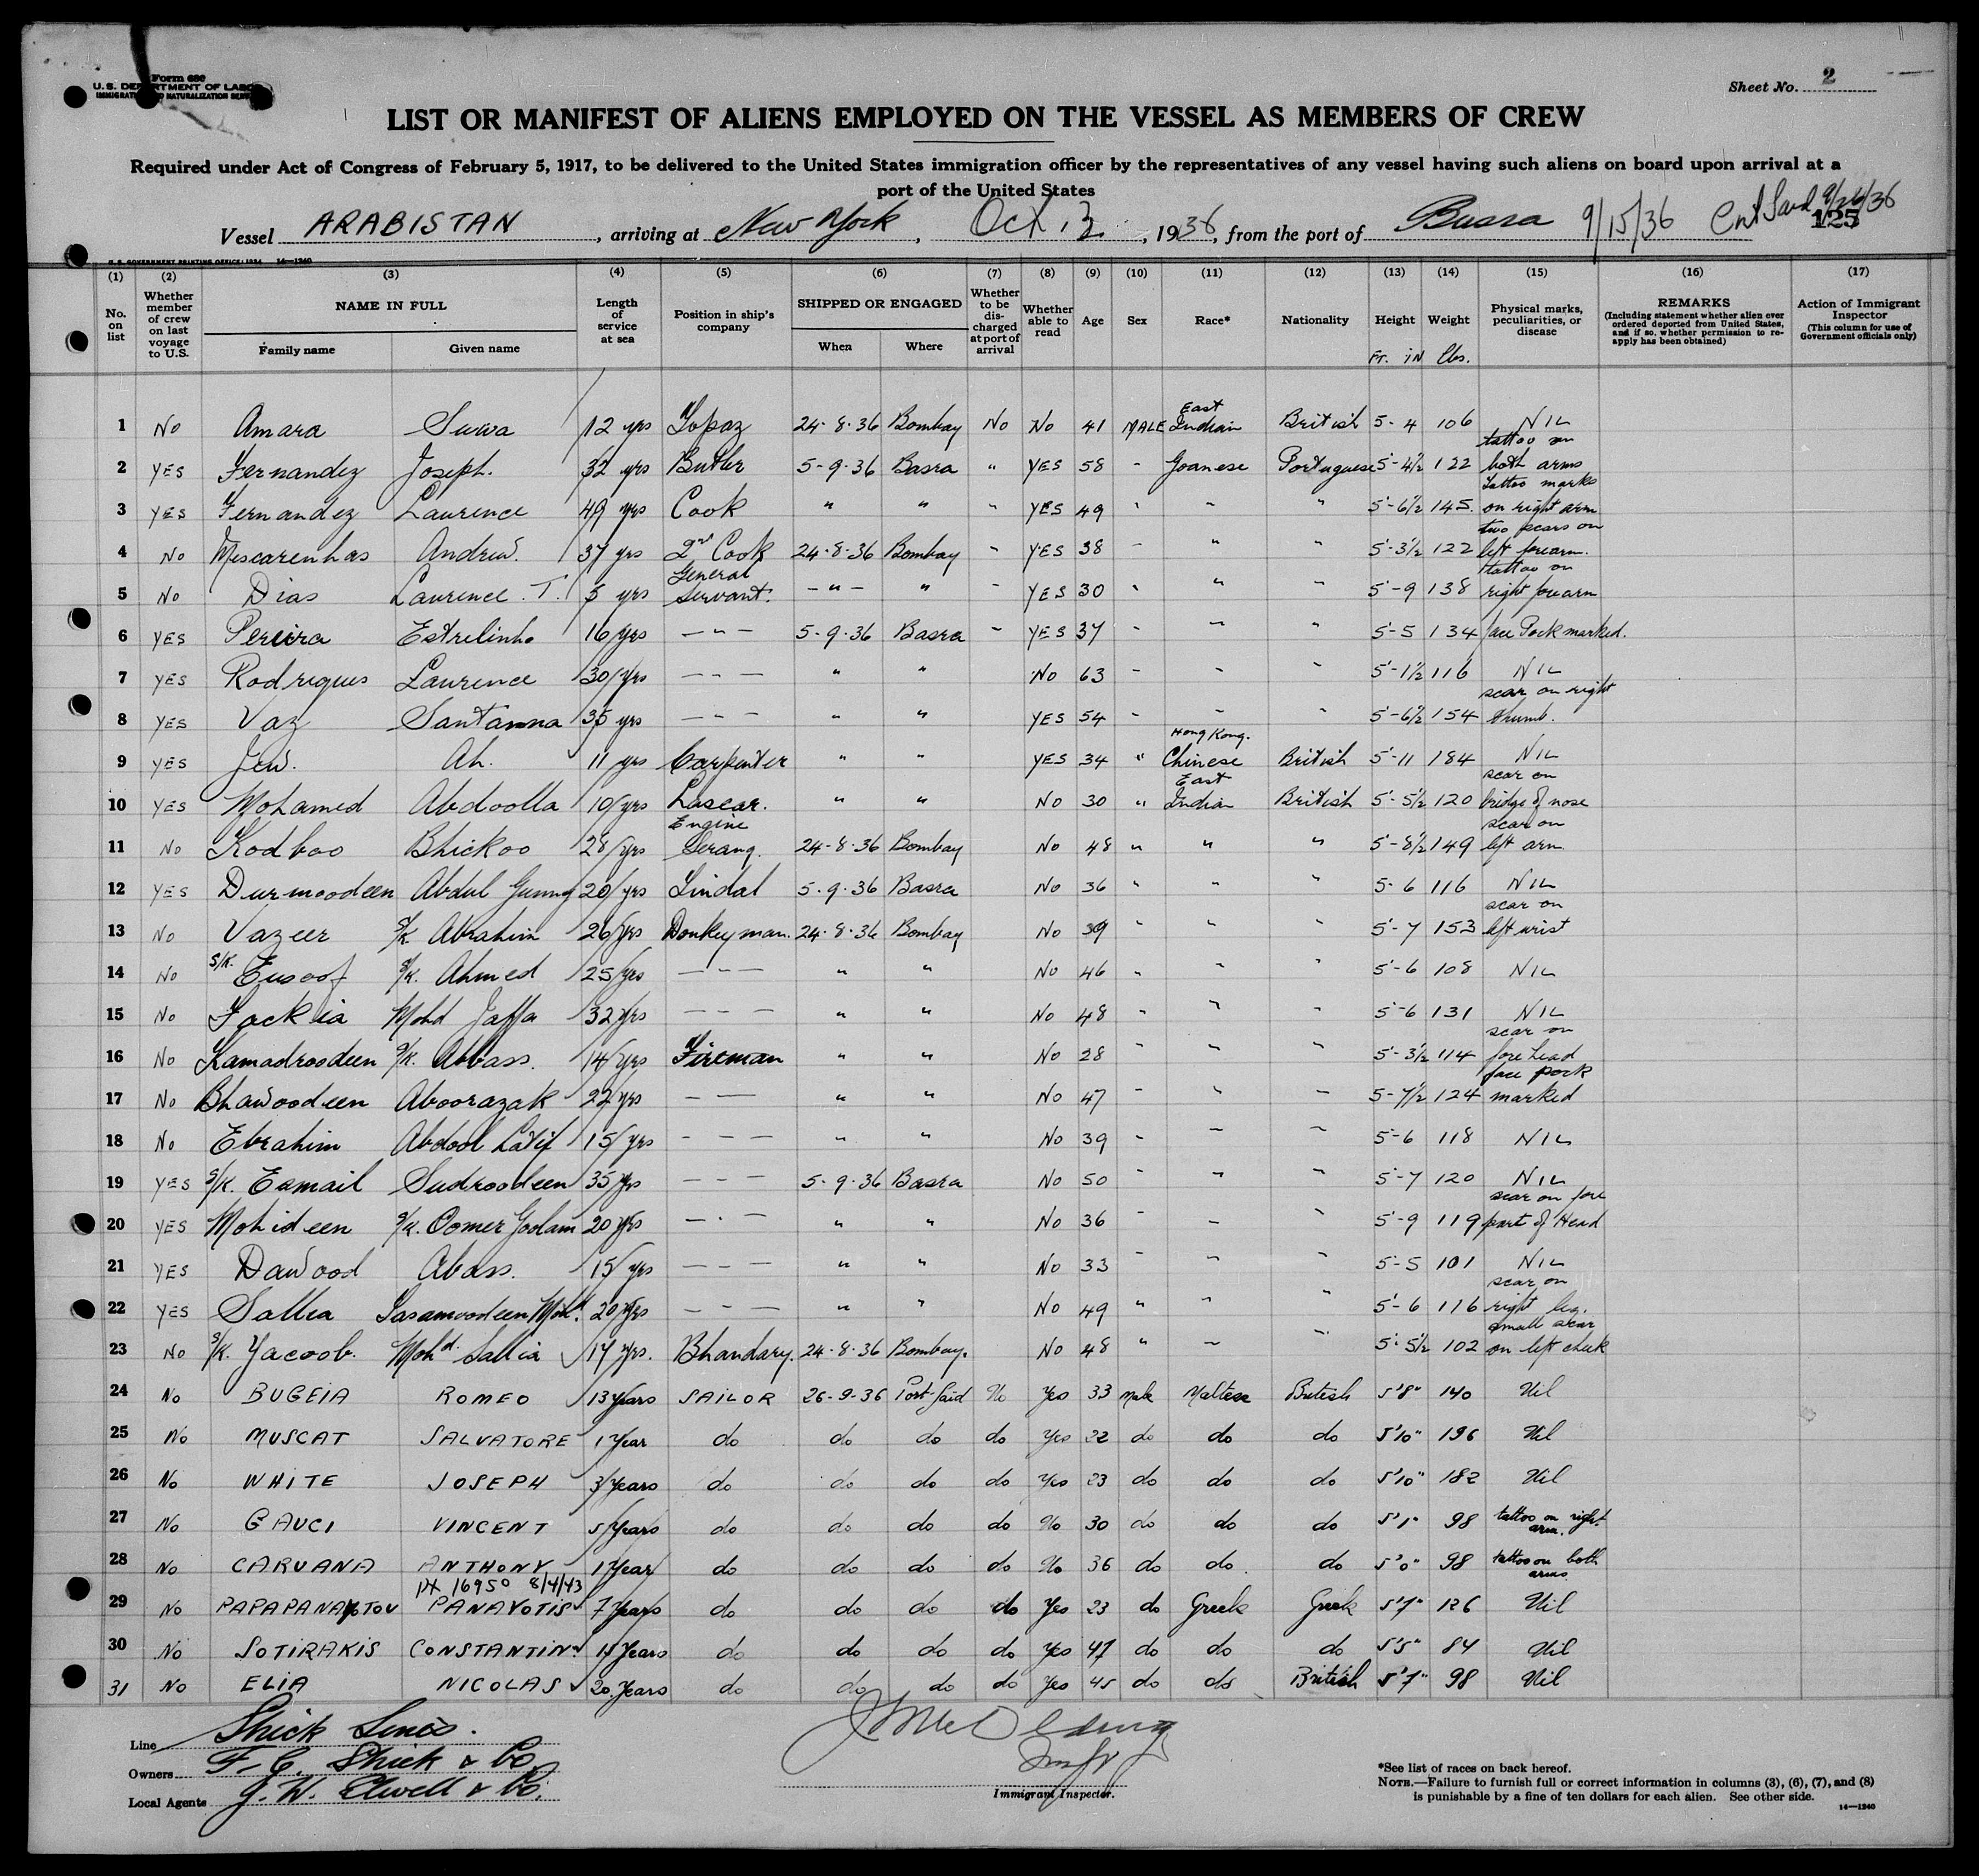 Form 680
U.S. DEPARTMENT OF LABOR
IMMIGRATION AND NATURALIZATION SERVICE
Sheet No. 2
LIST OR MANIFEST OF ALIENS EMPLOYED ON THE VESSEL AS MEMBERS OF CREW
Required under Act of Congress of February 5, 1917, to be delivered to the United States immigration officer by the representatives of any vessel having such aliens on board upon arrival at a
port of the United States
Vessel ARABISTAN, arriving at New York, Oct 13, 1936, from the port of Busra 9/15/36 9/26/36
125
U. S. GOVERNMENT PRINTING OFFICE: 1934 14—1240
(1) (2) (3) (4) (5) (6) (7) (8) (9) (10) (11) (12) (13) (14) (15) (16) (17)
No. on list
Whether member of crew on last voyage to U.S.
NAME IN FULL
Family name Given name
Length of service at sea
Position in ship's company
SHIPPED OR ENGAGED
When Where
Whether to be discharged at port of arrival
Whether able to read
Age
Sex
Race*
Nationality
Height Ft. IN
Weight lbs.
Physical marks, peculiarities, or disease
REMARKS
(Including statement whether alien ever ordered deported from United States, and if so, whether permission to reapply has been obtained)
Action of Immigrant Inspector
(This column for use of Government officials only)
1 No Amara Suwa 12 yrs Topaz 24-8-36 Bombay No No 41 MALE East Indian British 5-4 106 NIL
2 YES Fernandez Joseph. 32 yrs Butler 5-9-36 Basra " YES 58 - Goanese Portuguese 5'-4½ 122 tattoo on both arms
3 YES Fernandez Laurence 49 yrs Cook " " " YES 49 " " " 5'-6½ 145. Tattoo marks on right arm
4 No Mescarenhas Andrew. 37 yrs 2nd Cook 24-8-36 Bombay " YES 38 - " " 5'-3½ 122 two scars on left forearm.
5 No Dias Laurence. T. 5 yrs General Servant. -"- " " YES 30 " " " 5'-9 138 tattoo on right forearm
6 YES Pereira Estrelinho 16 yrs -"- 5-9-36 Basra " YES 37 " " " 5'-5 134 face Pock marked.
7 YES Rodrigues Laurence 30 yrs -"- " " No 63 - " " 5'-1½ 116 NIL
8 YES Vaz Santanna 35 yrs -"- " " YES 54 - " " 5'-6½ 154 scar on right thumb.
9 YES Jew. Ah. 11 yrs Carpenter " " YES 34 " Hong Kong. Chinese British 5'-11 184 NIL
10 YES Mohamed Abdoolla 10 yrs Lascar. " " No 30 " East Indian British 5'-5½ 120 scar on bridge of nose
11 No Kodboo Bhickoo 28 yrs Engine Serang. 24-8-36 Bombay No 48 " " " 5'-8½ 149 scar on left arm
12 YES Durmoodeen Abdul Gunny 20 yrs Tindal 5-9-36 Basra No 36 " " " 5-6 116 NIL
13 No Vazeer S/K. Abrahim 26 yrs Donkeyman. 24-8-36 Bombay No 39 " " " 5'-7 153 scar on left wrist
14 No S/K. Eusoof S/K. Ahmed 25 yrs -"- " " No 46 " " " 5'-6 108 NIL
15 No Mohd Jaffa 32 yrs -"- " " No 48 " " " 5'-6 131 NIL
16 No Kamadroodeen S/K. Abbass. 14 yrs Fireman " " No 28 " " " 5'-3½ 114 scar on fore head
17 No Bhawoodeen Aboorazak 22 yrs -"- " " No 47 - " " 5-7½ 124 face pock marked
18 No Ebrahim Abdool Latif 15 yrs -"- " " No 39 " " " 5-6 118 NIL
19 YES S/K. Esmail Sudroodeen 35 yrs -"- 5-9-36 Basra No 50 " " " 5'-7 120 NIL
20 YES Mohideen S/K. Oomer Goolam 20 yrs -"- " " No 36 " " " 5'-9 119 scar on fore part of Head
21 YES Dawood Abass. 15 yrs -"- " " No 33 " " " 5'-5 101 NIL
22 YES Sallia Mohd. 20 yrs -"- " " No 49 " " " 5'-6 116 scar on right leg.
23 No S/K. Yacoob. Mohd. Sallia 14 yrs. Bhandary. 24-8-36 Bombay. No 48 " " " 5'-5½ 102 small scar on left cheek
24 No BUGEIA ROMEO 13 years SAILOR 26-9-36 Port-Said No Yes 33 Male Maltese British 5'8" 140 Nil
25 No MUSCAT SALVATORE 1 Year do do do do Yes 22 do do do 5'10" 196 Nil
26 No WHITE JOSEPH 3 Years do do do do Yes 23 do do do 5'10" 182 Nil
27 No GAUCI VINCENT 5 Years do do do do No 30 do do do 5'1" 98 tattoo on right arm.
28 No CARUANA ANTHONY 1 Year do do do do No 36 do do. do 5'0" 98 tattoo on both arms
16950 8/4/43
29 No PAPAPANAYOTOU PANAYOTIS 7 Years do do do do Yes 23 do Greek Greek 5'7" 126 Nil
30 No SOTIRAKIS CONSTANTIN. 15 Years do do do do Yes 47 do do do 5'5" 84 Nil
31 No ELIA NICOLAS 20 Years do do do do Yes 45 do do British 5'7" 98 Nil
Line Strick Lines.
Owners F. C. Strick & Co.
Local Agents J. W. Elwell & Co.
Immigrant Inspector.
*See list of races on back hereof.
NOTE.—Failure to furnish full or correct information in columns (3), (6), (7), and (8)
is punishable by a fine of ten dollars for each alien. See other side.
14—1240